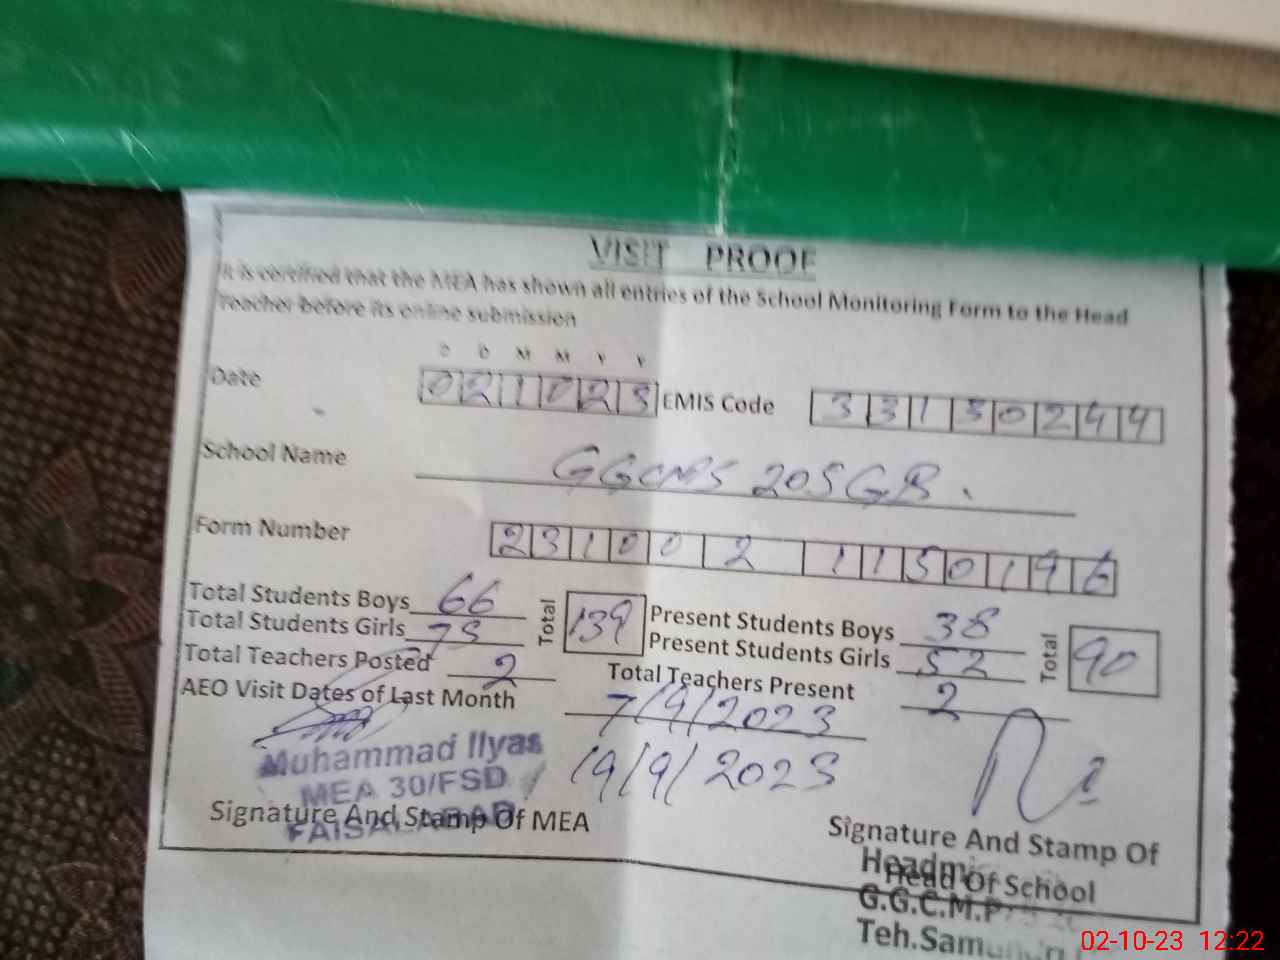 VISIT PROOF
It is certified that the MEA has shown all entries of the School Monitoring Form to the Head
Teacher before its online submission
D D M M Y Y
Date 021023 EMIS Code 33130244
School Name GGCMPS 205 GB.
Form Number 2310021150196
Total Students Boys 66 Total 139 Present Students Boys 38 Total 90
Total Students Girls 73 Present Students Girls 52
Total Teachers Posted 2 Total Teachers Present 2
AEO Visit Dates of Last Month 7/9/2023
19/9/2023
Muhammad Ilyas
MEA 30/FSD
FAISALABAD
Signature And Stamp Of MEA
Signature And Stamp Of
Head Of School
G.G.C.M.P
02-10-23 12:22